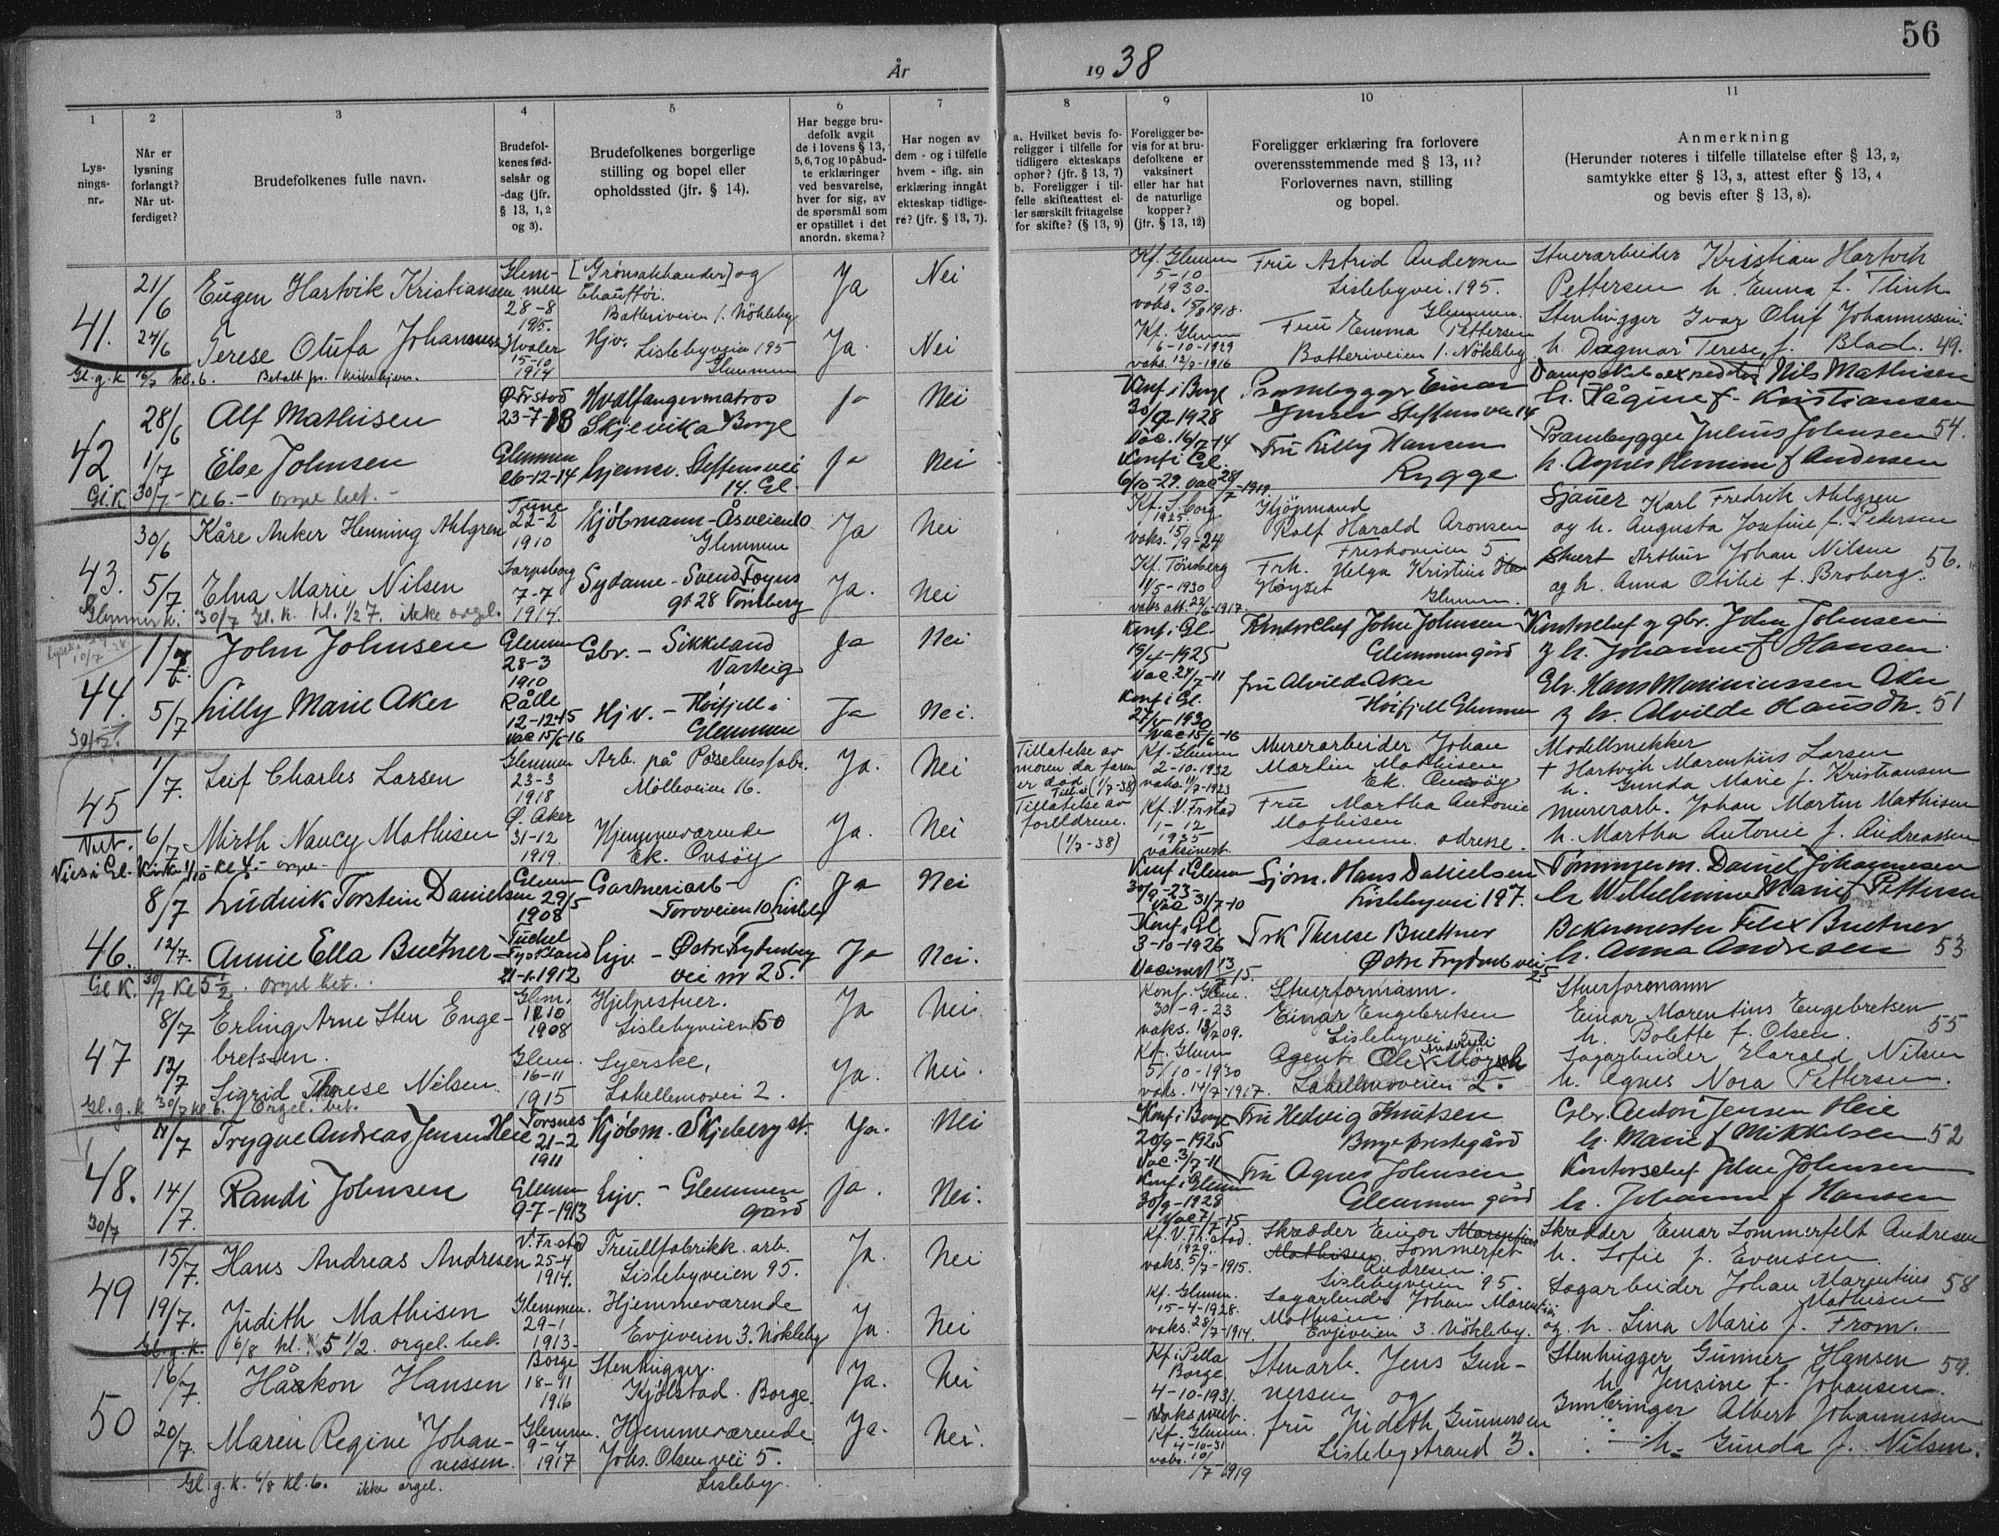 56
År 1938
1
2
3
4
5
6
7
8
9
10
11
Lysningsnr.
Når er lysning forlangt? Når utferdiget?
Brudefolkenes fulle navn.
Brudefolkenes fødselsår og -dag (jfr. § 13, 1, 2 og 3).
Brudefolkenes borgerlige stilling og bopel eller opholdssted (jfr. § 14).
Har begge brudefolk avgitt de i lovens § 13, 5, 6, 7 og 10 påbudte erklæringer ved besvarelse, hver for sig, av de spørsmål som er opstillet i det anordn. skema?
Har nogen av dem - og i tilfelle hvem - iflg. sin erklæring inngått ekteskap tidligere? (jfr. § 13, 7).
a. Hvilket bevis foreligger i tilfelle for tidligere ekteskaps ophør? (jfr. § 13, 7) b. Foreligger i tilfelle skifteattest eller særskilt fritagelse for skifte? (§ 13, 9)
Foreligger bevis for at brudefolkene er vaksinert eller har hat de naturlige kopper? (jfr. § 13, 12)
Foreligger erklæring fra forlovere overensstemmende med § 13, 11? Forlovernes navn, stilling og bopel.
Anmerkning (Herunder noteres i tilfelle tillatelse efter § 13, 2, samtykke efter § 13, 3, attest efter § 13, 4 og bevis efter § 13, 8).
41.
21/6 Eugen Hartvik Kristiansen Glemmen 28-8 1915. [Grønsakhandler] og Chauffør. Batteriveien 1. Nøkleby Ja Nei
Kf. Glemm 5-10 1930. vaks. 15/8 1918. Fru Astrid Andersen Lislebyvei. 195. Glemmen. Stuerarbeider Kristian Hartvik Pettersen h. Emma f. Flink
24/6 Terese Olufa Johannessen Hvaler 15-10 1914 Hjv. Lislebyveien 195 Glemmen Ja. Nei
Kf. Glemm 6-10-1929 vaks. 12/7-1916 Fru Emma Pettersen Batteriveien 1. Nøkleby Stenhugger Ivar Oluf Johannessen. h. Dagmar Terese f. Blad. 49.
Gl.g.k 16/7 kl. 6. Betalt pr. kirketjen.
42
28/6 Alf Mathisen Ø. Frstad 23-7-18 Hvalfangermatros Skjevika Borge Ja Nei
Konf i Borge 30/9-1928 Vac. 16/7-14 Prambygger Einar Jensen Steffensvei 14 Dampskibsexpeditør Nils Mathisen h. Hågine f. Kristiansen
1/7 Else Johnsen Glemmen 26-12-14 hjemev. Steffensvei 14. Gl. Ja Nei
Konf i Gl. 6/10-29. Vac 28/7-1919 Fru Lilly Hansen Rygge Prambygger Julius Johnsen 54. h. Agnes Hermine f Andersen
Gl. K. 30/7 - Kl 6. - orgel bet. -
43.
30/6 Kåre Anker Henning Ahlgren Tune 22-2 1910 Kjøbmann - Åsveien 10 Glemmen Ja Nei
Kf. S.borg 1925. vaks. 15/9-24 Kjøpmand Rolf Harald Aronsen Friskoveien 5 Sjauer Karl Fredrik Ahlgren og h. Augusta Josefine f. Pedersen
5/7 Elna Marie Nilsen Sarpsborg 7-7 1914. Sydame - Svend Foyns gt 28 Tønsberg Ja. Nei
Kf. Tønsberg 11/5-1930 vaks att. 22/6-1917. Frk. Helga Kristine Høyset Glemm. Arthur Johan Nilsen og h. Anna Otilie f. Broberg. 56.
Glemmen k. 30/7 Gl. k. kl. 1/2 7. ikke orgel.
44.
1/7 John Johnsen Glemmen 28-3 1910 Gbr. - Sikkeland Varteig Ja Nei
Konf i Gl. 19/4-1925 Vac. 24/7-11 Kontorchef John Johnsen Glemmengård Kontorchef og gbr. John Johnsen og h. Johanne f Hansen.
5/7 Lilly Marie Aker Råde 12-12-15 vac 15/6-16 Hjv. - Høifjell i Glemmen Ja Nei.
Konf i Gl. 27/4 1930 Vac 15/6-16 fru Alvilde Aker Høifjell Glemmen Gbr. Hans Marinius Aker og h. Alvilde 51
30/7
45
1/7. Leif Charles Larsen Glemmen 23-3 1918 Arb. på Porselensfabr. Mølleveien 16. Ja. Nei
Tillatelse av moren da faren er død (1/7-38) Kf. Glemm 2-10-1932 vaks. 11/7-1923 Murerarbeider Johan Martin Mathisen Ek. Onsøy Modellsnekker + Hartvik Marentius Larsen h. Gunda Marie f. Kristiansen
6/7 Mirth Nancy Mathisen Ø. Aker 31-12 1919. Hjemmeværende Ek. Onsøy Ja. Nei
Tillatelse av foreldrene. (1/7-38) Kf. V. Frstad 1-12 1935 vaksinert. Fru Martha Antonie Mathisen samme adresse. murerarb. Johan Martin Mathisen h. Martha Antonie f. Andreassen
Vies i Gl. Kirke 1/10 - kl 4. - orgel
46.
8/7 Ludvik Torstein Danielsen Glemm 29/5 1908 Gartneriarb - Torvveien 10 Lisleby Ja Nei
Konf i Glemm 30/9-23- Vac 31/7-10 Sjøm. Hans Danielsen Lislebyvei 197. Tømmingerm. Daniel Johannesen h Wilhelmine Marie f Pettersen
12/7. Annie Ella Buettner Tyskland 21-1-1912 hjv. - Østre Frydenberg vei nr 25. Ja Nei.
Konf i Gl. 3-10-1926 Vaccinert 13/7-15 Frk Therese Buettner Østre Frydenb vei 25 Bakermester Felix Buettner h. Anna Andresen 53
Gl K. 30/7 Kl 5 1/2. orgel bet.
47
8/7 Erling Arne Sten Engebretsen. Glem. 1910 1908 Hjelpestuer. Lislebyveien 50 Ja Nei.
Konf. Glem. 30-9-23 vaks. 13/7 09. Stuerformann. Einar Engebretsen Lislebyvei 50 Stuerformann Einar Marentius Engebretsen h. Bolette f. Olsen. 55
12/7 Sigrid Therese Nilsen. Glem. 16-11 1915 Syerske, Lakellemovei 2. Ja. Nei.
Kf. Glemm 5/10-1930 vaks. 14/7-1917. Agent Ole Mørek Lakellemoveien 2. Sagarbeider Harald Nilsen h. Agnes Nora Pettersen.
Gl.g.k 30/7 kl. 6. Orgel. bet.
48.
11/7 Trygve Andreas Jensen Heie Torsnes 21-2 1911 Kjøbm. Skjeberg st. Ja. Nei
Konf i Borge 20/9-1925 Vac. 3/7-11 Fru Hedvig Knutsen Borge prestegård Gbr. Anton Jensen Heie h. Marie f Mikkelsen 52
14/7. Randi Johnsen Glemm 9-7-1913 hjv. - Glemmen gård Ja. Nei.
Konf i Glemm 30/9-1928 Vac 7/7-15 Fru Agnes Johnsen Glemmen gård Kontorchef John Johnsen h. Johanne f Hansen
30/7
49
15/7. Hans Andreas Andresen V. Frstad 25-4 1914. Treullfabrikk. arb. Lislebyveien 95. Ja. Nei
Kf. V. Fr.stad. 1929. vaks. 5/7-1915. Skredder Einar Marentius Mathisen Sommerfelt Andresen. Lislebyveien 95. Skredder Einar Sommerfelt Andresen h. Sofie f. Evensen.
19/7. Judith Mathisen Glemmen. 29-1 1913. Hjemmeværende Evjeveien 3. Nøkleby Ja. Nei
Kf. Glemm. 15-4-1928. vaks. 28/7-1914. Sagarbeider Johan Marentius Mathisen. Evjeveien 3. Nøkleby. Sagarbeider Johan Marentius Mathisen og h. Lina Marie f. From. 58
Gl.g.k. 6/8 kl. 5 1/2. orgel. bet.
50
16/7. Håkon Hansen Borge 18-11 1916 Stenhugger. Kjølstad. Borge. Ja. Nei
Kf. i Pella Borge 4-10-1931. Vaksinert. Stenarb. Jens Gunnersen og Stenhugger Gunner Hansen h. Jensine f. Johansen. 59.
20/7. Maren Regine Johannessen. Glemm. 9-4 1917 Hjemmeværende. Johs. Olsen vei 5. Lisleby. Ja. Nei.
Kf. Glemm. 4-10-31 vaks. 10/7-1919 fru Judith Gunnersen Lislebystrand 3. Innbringer Albert Johannessen h. Gunda f. Nilsen.
Gl.g.k. 6/8 kl. 6. ikke orgel.